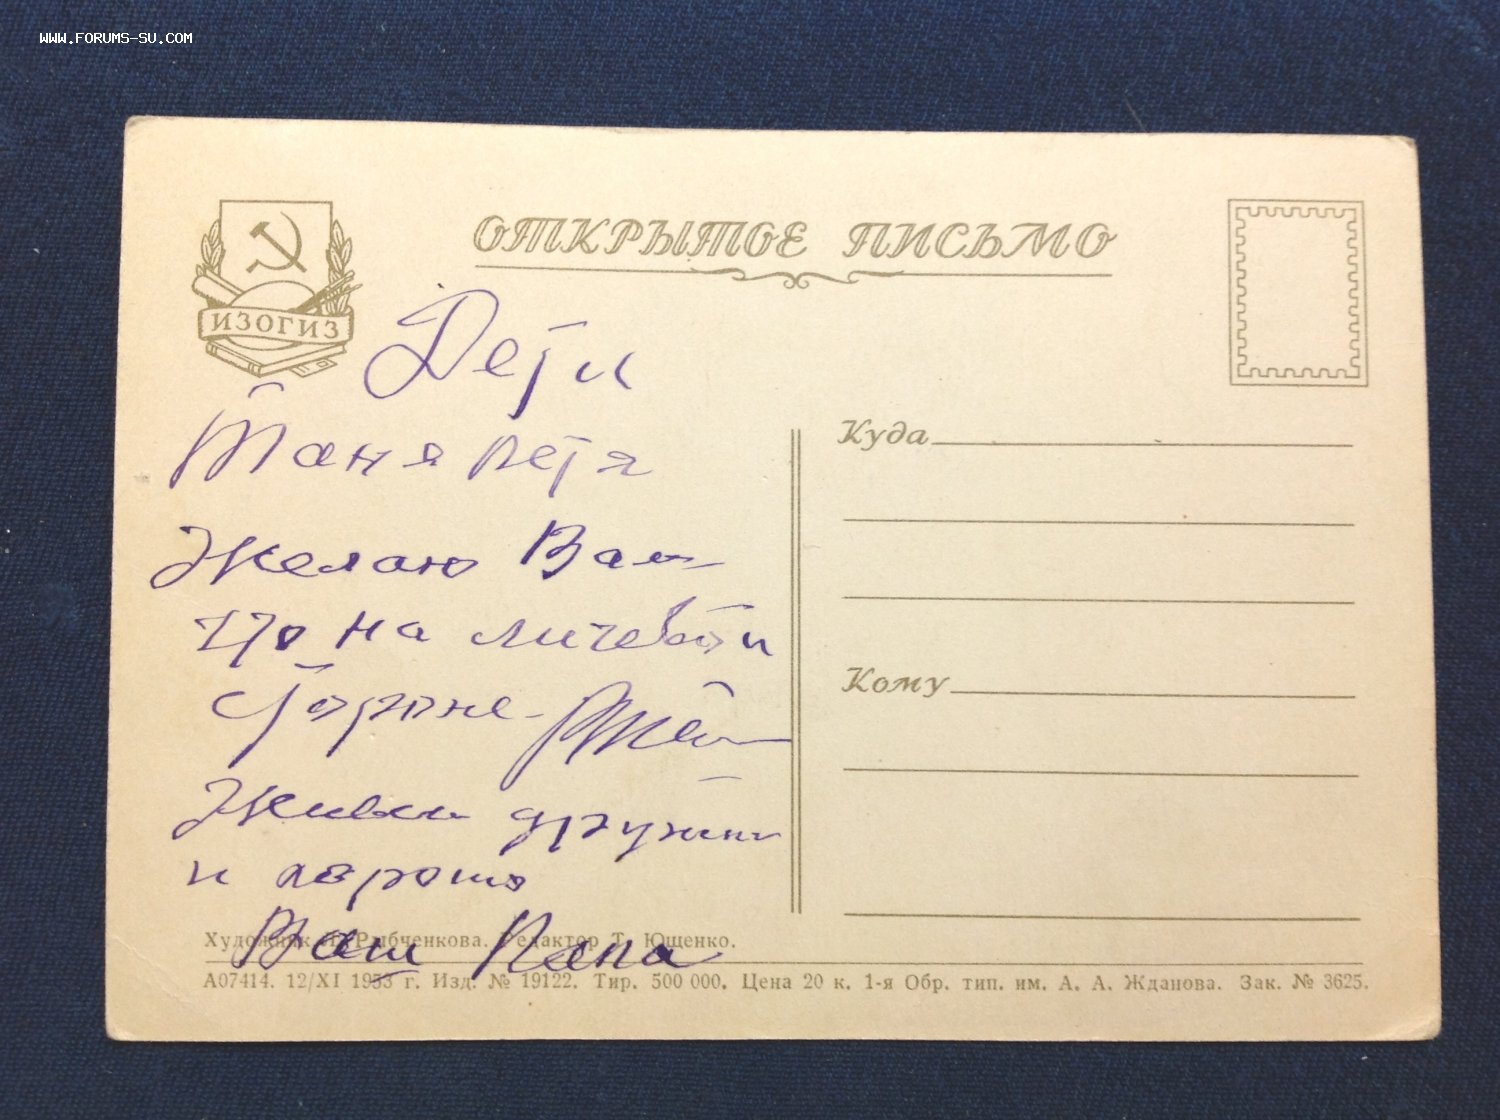 WWW.FORUMS-SU.COM
ОТКРЫТОЕ ПИСЬМО
ИЗОГИЗ
Дети
Таня Петя
Желаю Вам
что на личевой
стороне
Живи дружно
и хорошо
Ваш Папа
Куда
Кому
Художник Рыбченкова. Редактор Т. Ющенко.
А07414. 12/XI 1953 г. Изд. № 19122. Тир. 500 000. Цена 20 к. 1-я Обр. тип. им. А. А. Жданова. Зак. № 3625.